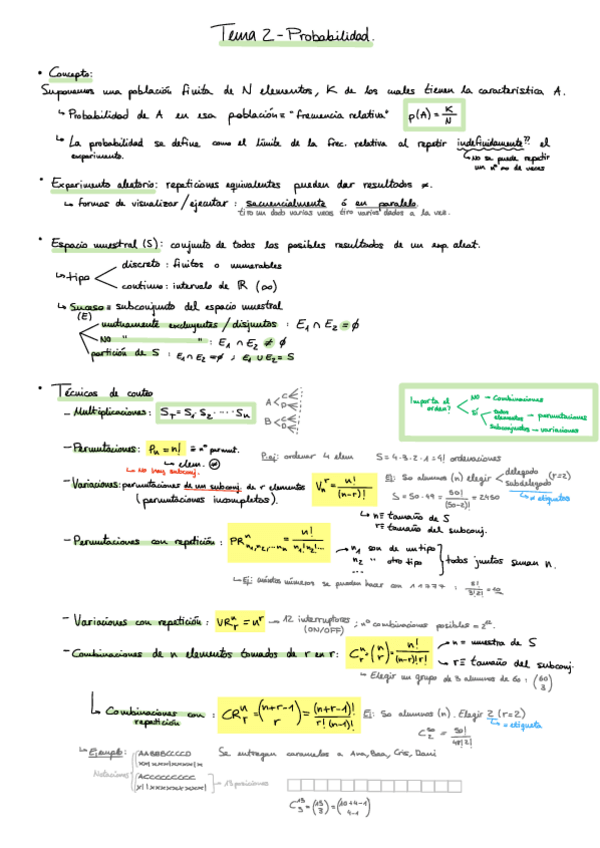 Tema 2 - Probabilidad.
• Concepto:
Suponemos una población finita de N elementos, K de los cuales tienen la característica A.
↳ Probabilidad de A en esa población ≡ "frecuencia relativa" p(A) = K/N
↳ La probabilidad se define como el límite de la frec. relativa al repetir indefinidamente?? el experimento.
↳ No se puede repetir un nº ∞ de veces
• Experimento aleatorio: repeticiones equivalentes pueden dar resultados ≠.
↳ formas de visualizar / ejecutar: secuencialmente ó en paralelo.
tiro un dado varias veces tiro varios dados a la vez.
• Espacio muestral (S): conjunto de todos los posibles resultados de un exp. aleat.
↳ tipo
discreto: finitos o numerables
continuo: intervalo de ℝ (∞)
↳ Suceso ≡ subconjunto del espacio muestral
(E)
mutuamente excluyentes / disjuntos : E₁ ∩ E₂ = ∅
NO " " : E₁ ∩ E₂ ≠ ∅
partición de S : E₁ ∩ E₂ = ∅ ; E₁ ∪ E₂ = S
• Técnicas de conteo
- Multiplicaciones: S_T = S₁ · S₂ · ... · S_n
A < C D
B < C D
Importa el orden?
NO - Combinaciones
Sí
todos elementos - permutaciones
subconjuntos - variaciones
- Permutaciones: Pₙ = n! ≡ nº permut.
↳ elem. ≠
↳ no hay subconj.
P.ej: ordenar 4 elem S = 4·3·2·1 = 4! ordenaciones
- Variaciones: permutaciones de un subconj. de r elementos (permutaciones incompletas).
Vₙʳ = n!/(n-r)!
Ej: 50 alumnos (n) elegir < delegado subdelegado (r=2)
S = 50·49 = 50!/(50-2)! = 2450
↳ ≠ etiquetas
↳ n ≡ tamaño de S
r ≡ tamaño del subconj.
- Permutaciones con repetición: PRⁿ n₁,n₂,...nₙ = n!/(n₁! n₂! ...)
→ n₁ son de un tipo
n₂ " otro tipo
...
} todos juntos suman n.
↳ Ej: cuántos números se pueden hacer con 11777 : 5!/(3!2!) = 10
- Variaciones con repetición: VRⁿᵣ = nʳ → 12 interruptores (ON/OFF) ; nº combinaciones posibles = 2¹².
- Combinaciones de n elementos tomados de r en r: Cⁿᵣ = (n r) = n!/((n-r)! r!)
→ n ≡ muestra de S
↳ r ≡ tamaño del subconj.
↳ Elegir un grupo de 3 alumnos de 60 : (60 3)
↳ Combinaciones con repetición : CRⁿᵣ = (n+r-1 r) = (n+r-1)!/(r!(n-1)!)
Ej: 50 alumnos (n). Elegir 2 (r=2)
↳ = etiqueta
C⁵⁰₂ = 50!/(48!2!)
↳ Ejemplo: AABBBCCCCD Se entregan caramelos a Ana, Bea, Cris, Dani
xx|xxx|xxxx|x
Notaciones
ACCCCCCCCC
x||xxxxxxxxx|
→ 13 posiciones
C¹³₃ = (13 3) = (10+4-1 4-1)